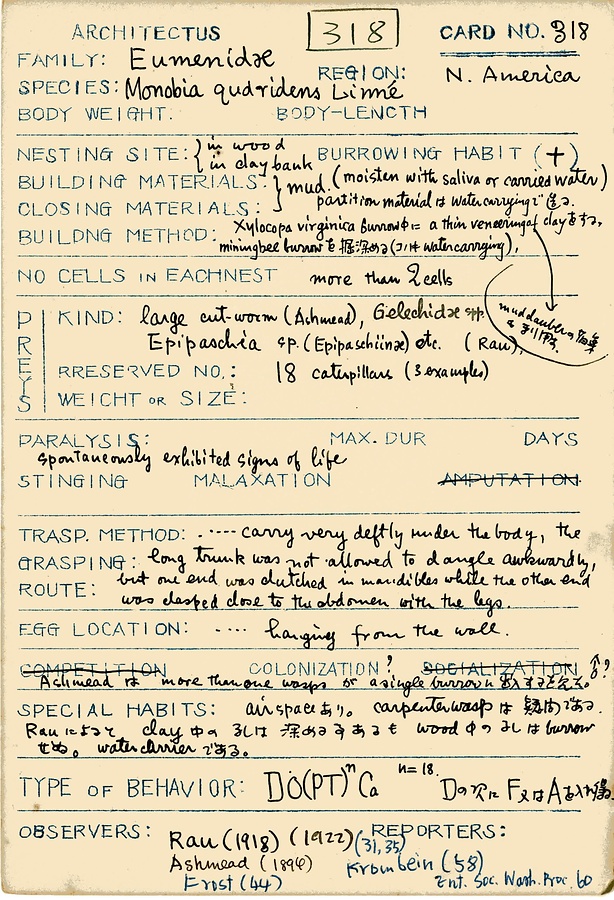 ARCHITECTUS 318 CARD NO. 318
FAMILY: Eumenidæ
REGION: N. America
SPECIES: Monobia qudridens Linné
BODY WEIGHT: BODY-LENGTH
NESTING SITE: { in wood
in clay bank BURROWING HABIT (+)
BUILDING MATERIALS: } mud. (moisten with saliva or carried water)
CLOSING MATERIALS: partition material は water carryingで造る.
BUILDNG METHOD: Xylocopa virginica burrow中に a thin veneering of clayをする,
miningbee burrowを掘深める(コハ watercarrying),
NO CELLS IN EACHNEST more than 2 cells
muddauberの
PREYS
KIND: large cut-worm (Ashmead), Gelechidæ spp.
Epipaschia sp. (Epipaschiinæ) etc. (Rau),
RRESERVED NO.: 18 caterpillars (3 examples)
WEIGHT OR SIZE:
PARALYSIS: MAX. DUR DAYS
spontaneously exhibited signs of life
STINGING MALAXATION AMPUTATION
TRASP. METHOD: ..... carry very deftly under the body, the
GRASPING: long trunk was not allowed to dangle awkwardly,
ROUTE: but one end was clutched in mandibles while the other end
was clasped close to the abdomen with the legs.
EGG LOCATION: .... hanging from the wall.
COMPETITION COLONIZATION? SOCIALIZATION
Ashmead は more than one wasps が a single burrowに
SPECIAL HABITS: airspaceあり。 carpenterwaspは疑問である.
Rauによると clay中の孔は深める事あるも wood中の孔は burrow
せぬ。 watercarrierである。
TYPE OF BEHAVIOR: DÖ(PT)ⁿCa n=18. Dの次にF又はAを入れ得る.
OBSERVERS: Rau (1918) (1922) (31, 35) REPORTERS:
Ashmead (1894) Krombein (58)
Frost (44) Ent. Soc. Wash. Proc. 60